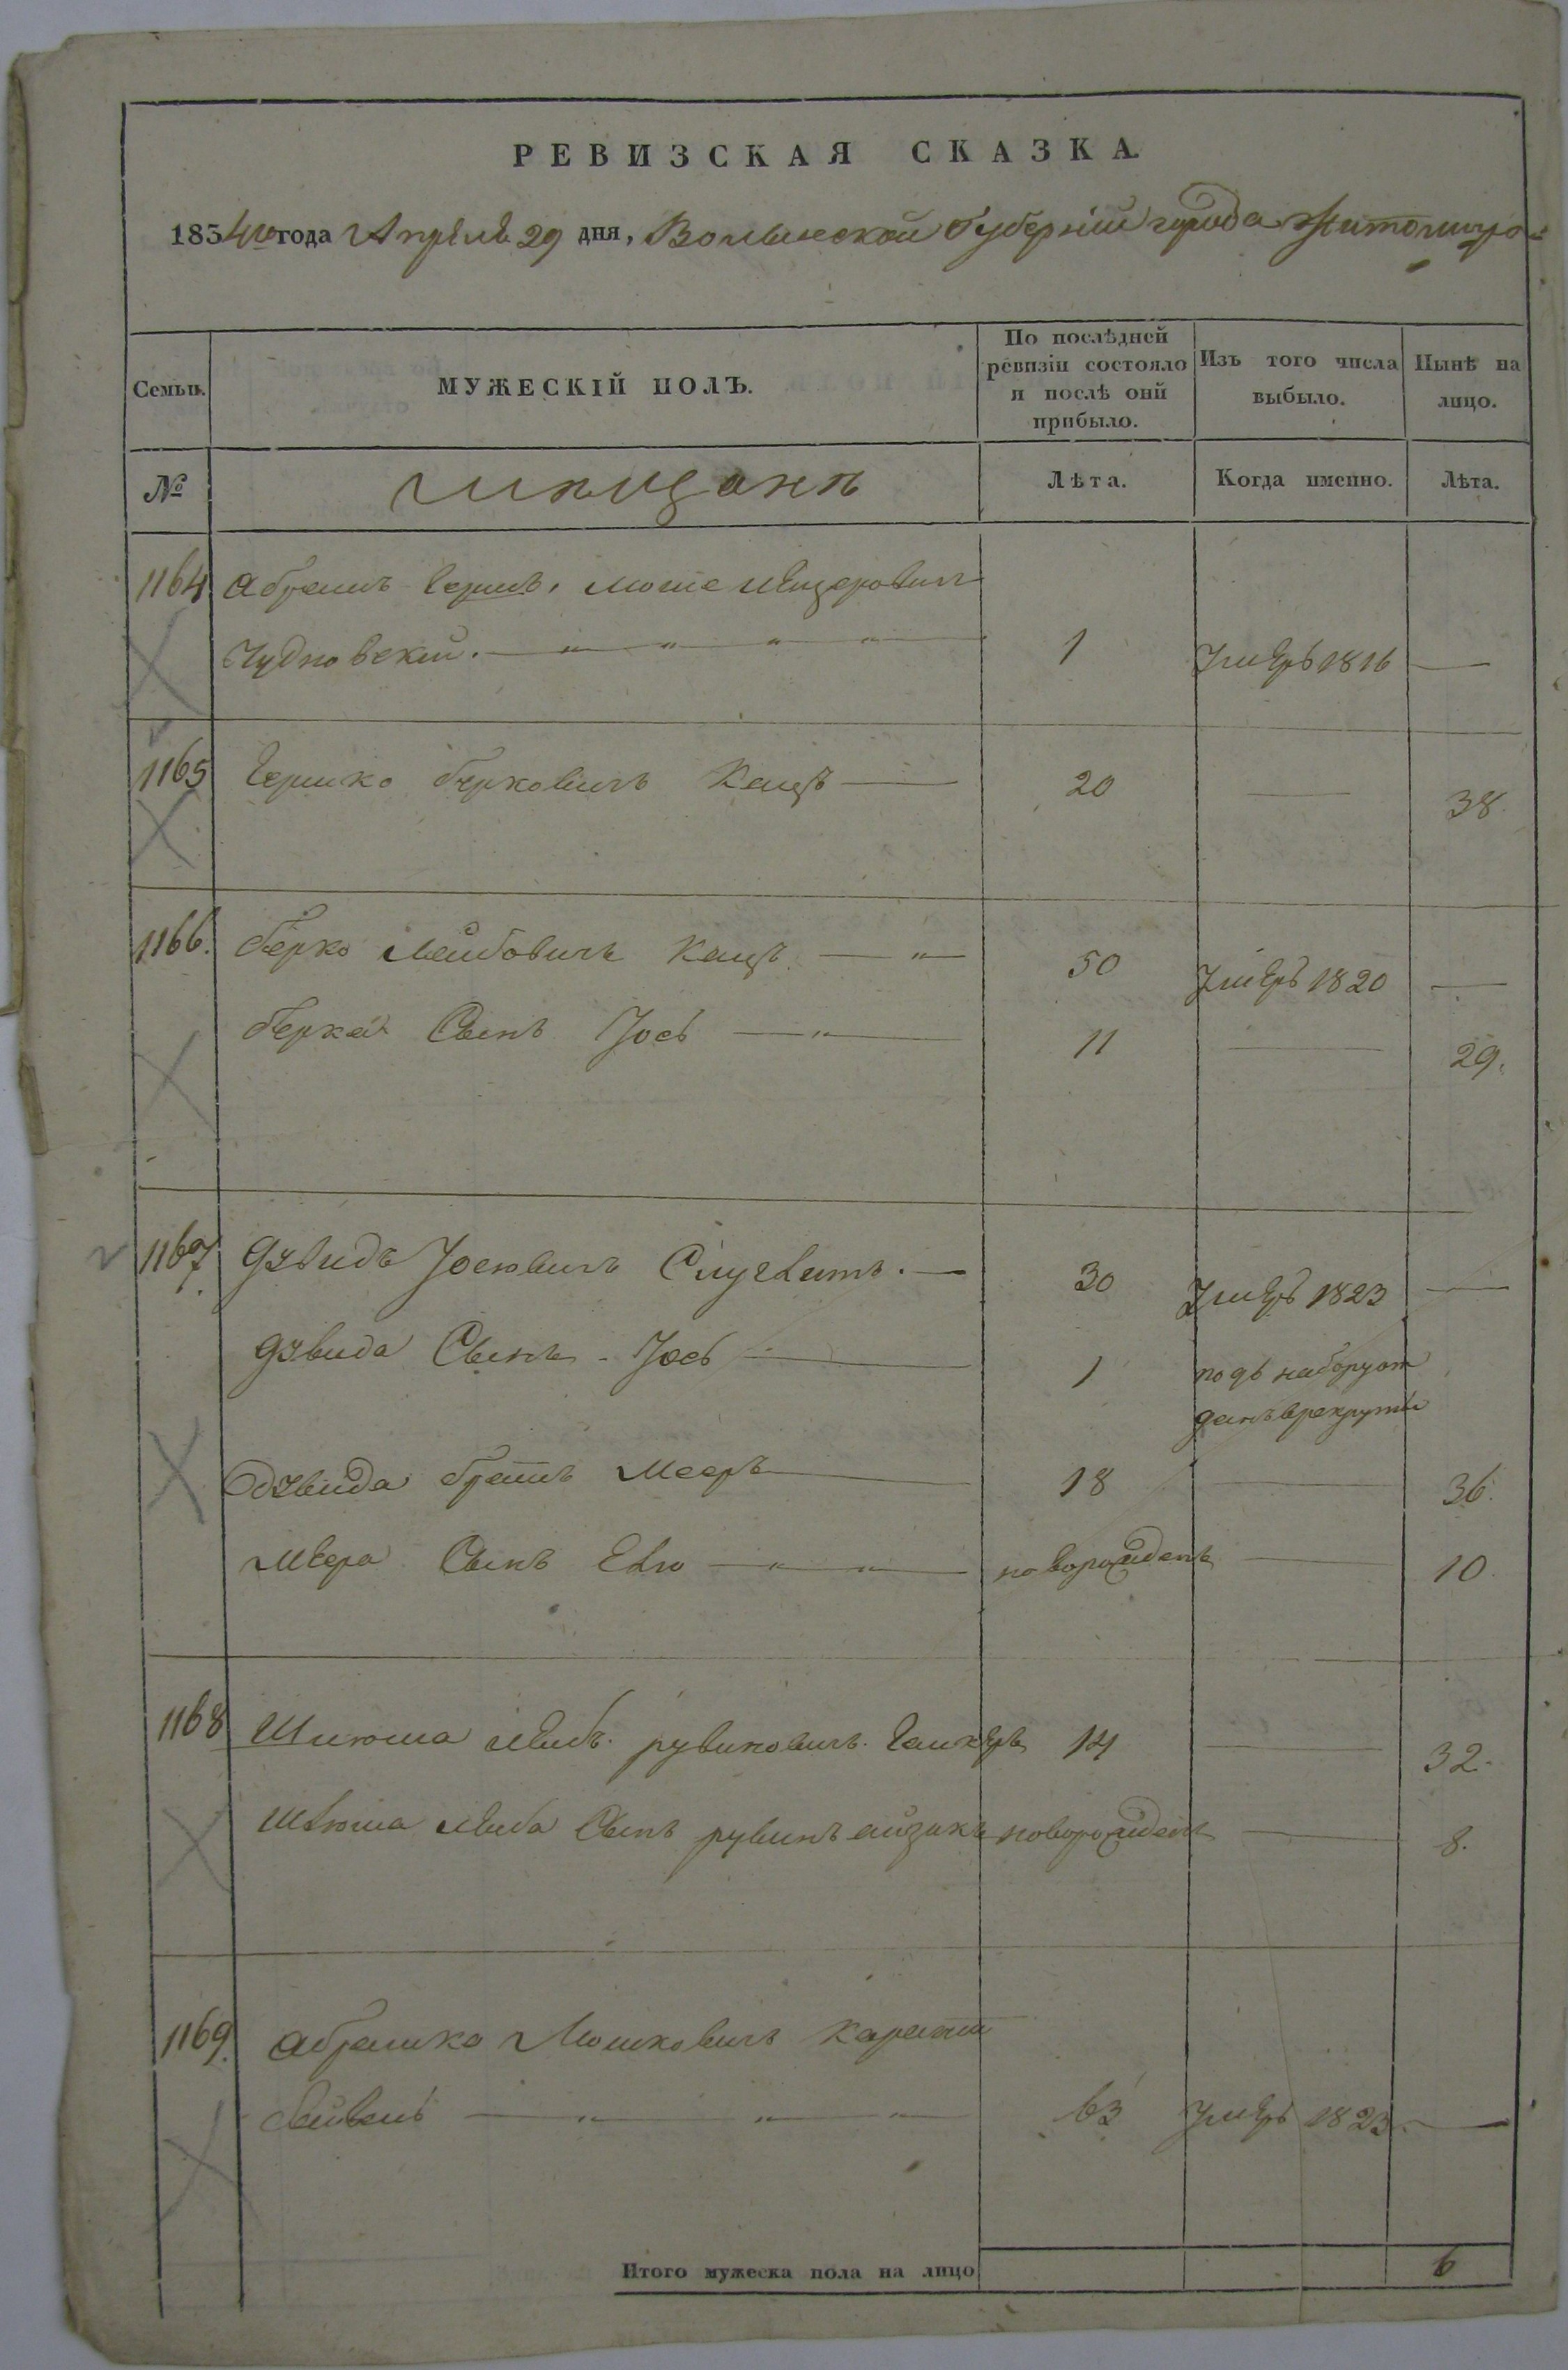 РЕВИЗСКАЯ СКАЗКА.
1834го года Апрѣля 29 дня, Волынской Губерніи города Житомира
Семьи. МУЖЕСКІЙ ПОЛЪ. По послѣдней ревизіи состояло и послѣ оній прибыло. Изъ того числа выбыло. Нынѣ на лицо.
№ мѣщанѣ Лѣта. Когда именно. Лѣта.
1164 Абрамъ Гершъ, Моше Мѣнд
Чудновскій. 1 Умеръ 1816 —
1165 Гершко Берковичъ Кацъ — 20 — 38.
1166. Берко Лейбовичъ Кацъ — 50 Умѣръ 1820 —
Берка Сынъ Іось — 11 — 29.
1167. Дувидъ Іосювичъ — 30 Умѣръ 1823 —
Дувида Сынъ - Іось — 1 подъ наборъ от
данъ врекруты
Дувида братъ Мееръ — 18 — 36.
Мѣера Сынъ Елю — новорожденъ — 10.
1168 Шлюма Лейбъ. рувиновичъ. 14 — 32.
Шлюма Лейба Сынъ рувинъ айзикъ новорожденъ — 8.
1169. Абрамко Мошковичъ
63 Умѣръ 1823. —
Итого мужеска пола на лицо 6